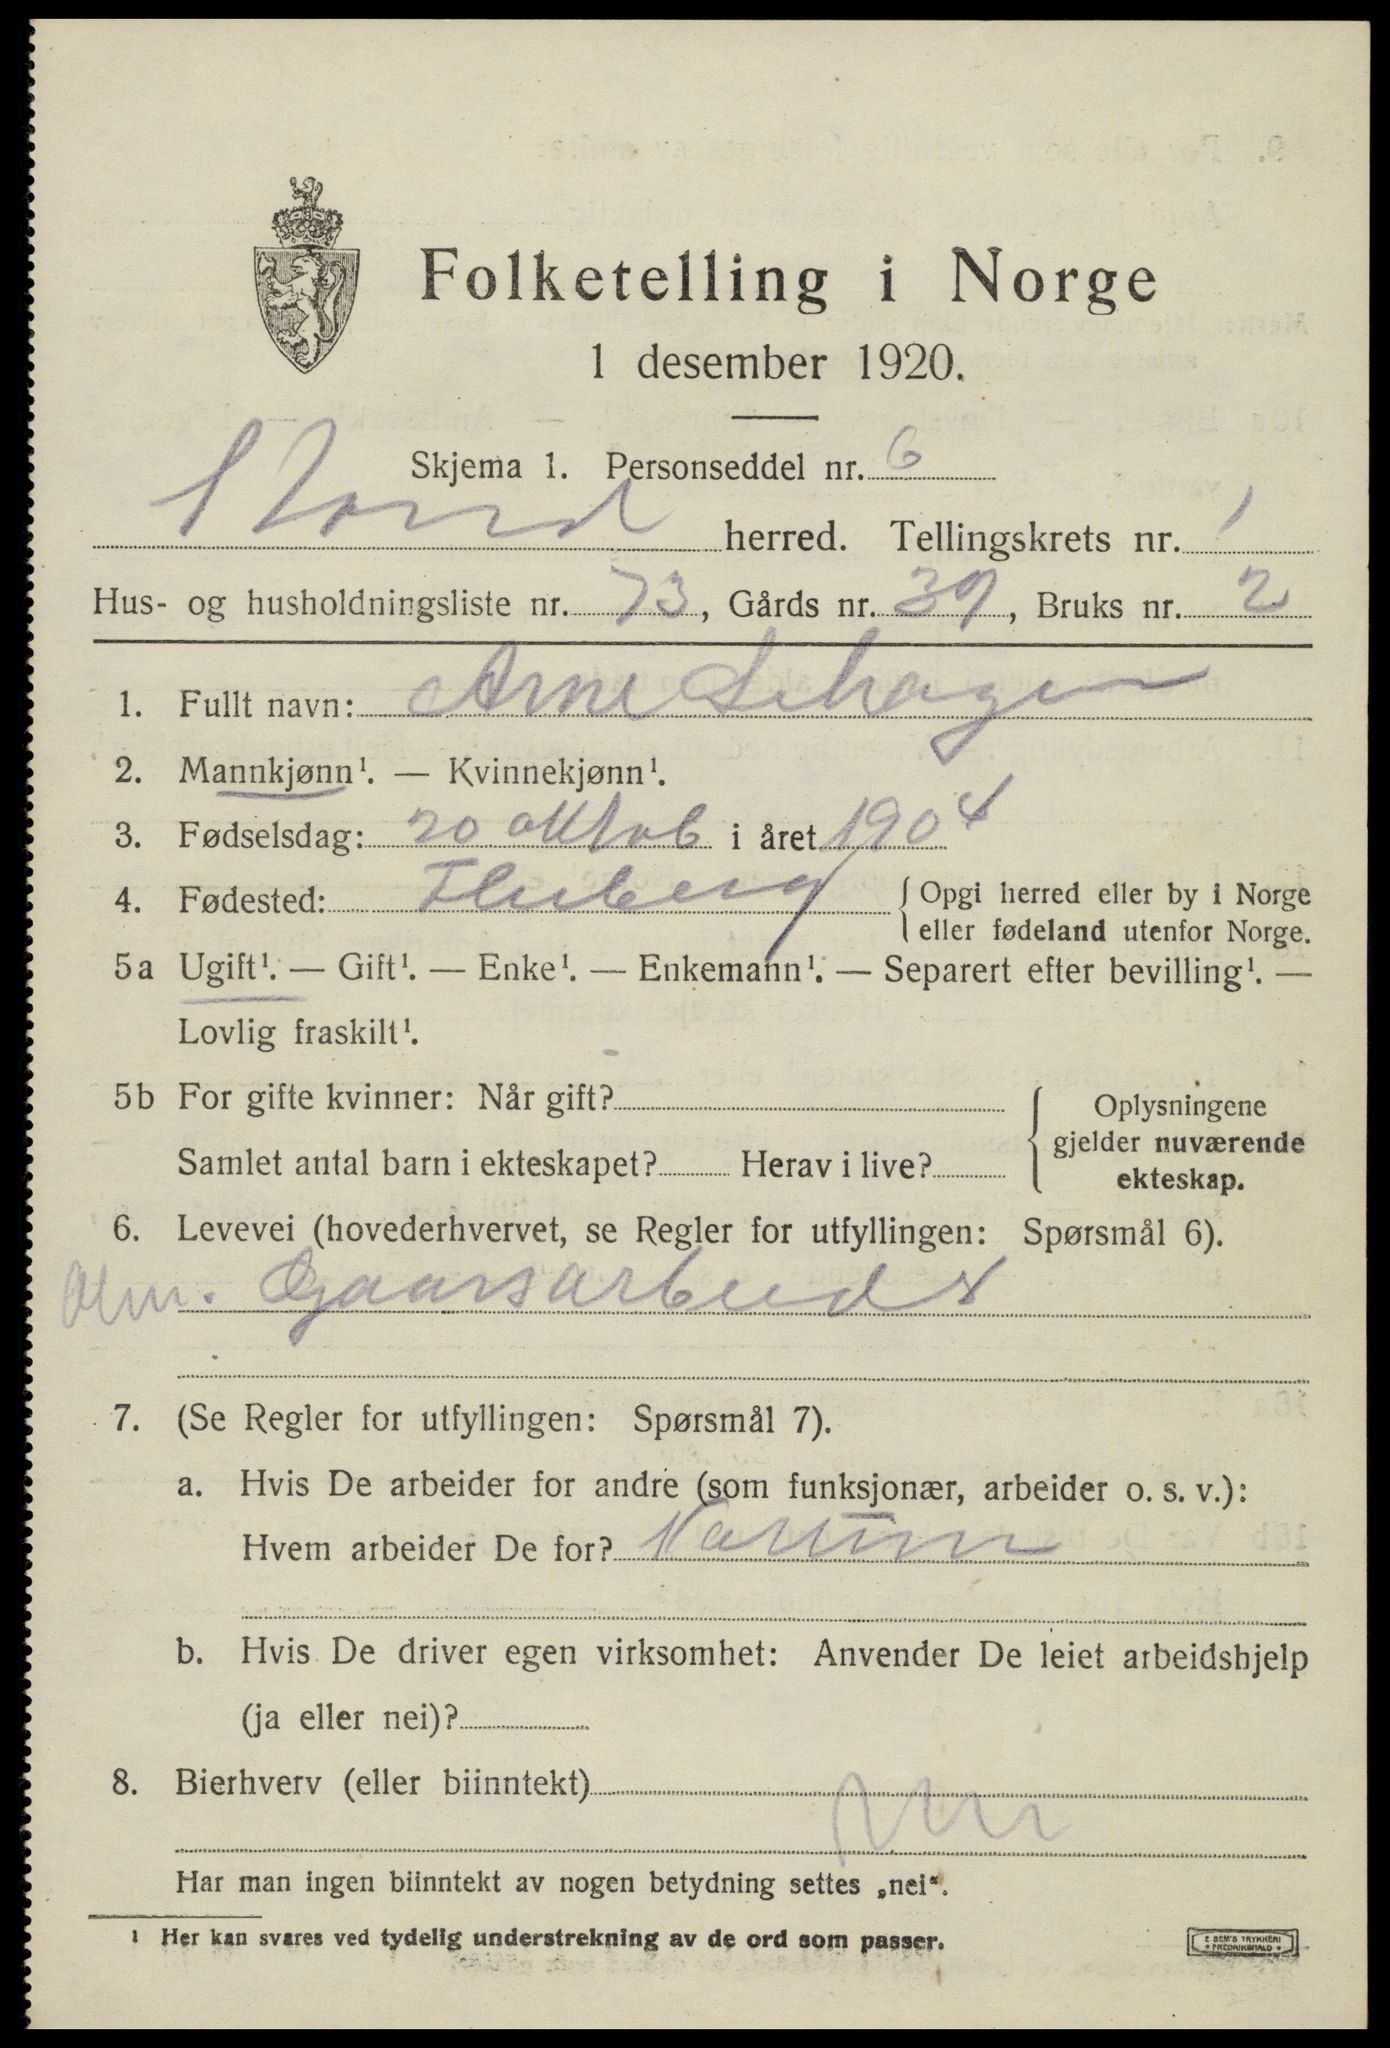 Folketelling i Norge
1 desember 1920.
Skjema 1. Personseddel nr. 6
herred. Tellingskrets nr. 1
Hus- og husholdningsliste nr. 73, Gårds nr. 39, Bruks nr. 2
1. Fullt navn: Arne
2. Mannkjønn¹. — Kvinnekjønn¹.
3. Fødselsdag: 20 oktob i året 1904
4. Fødested: Fluberg { Opgi herred eller by i Norge
eller fødeland utenfor Norge.
5a Ugift¹. — Gift¹. — Enke¹. — Enkemann¹. — Separert efter bevilling¹. —
Lovlig fraskilt¹.
5b For gifte kvinner: Når gift?
Samlet antal barn i ekteskapet? Herav i live?
{ Oplysningene
gjelder nuværende
ekteskap.
6. Levevei (hovederhvervet, se Regler for utfyllingen: Spørsmål 6).
Alm. Gaarsarbeider
7. (Se Regler for utfyllingen: Spørsmål 7).
a. Hvis De arbeider for andre (som funksjonær, arbeider o. s. v.):
Hvem arbeider De for?
b. Hvis De driver egen virksomhet: Anvender De leiet arbeidshjelp
(ja eller nei)?
8. Bierhverv (eller biinntekt)
Nei
Har man ingen biinntekt av nogen betydning settes „nei“.
¹ Her kan svares ved tydelig understrekning av de ord som passer.
E SEM'S TRYKKERI
FREDRIKSHALD